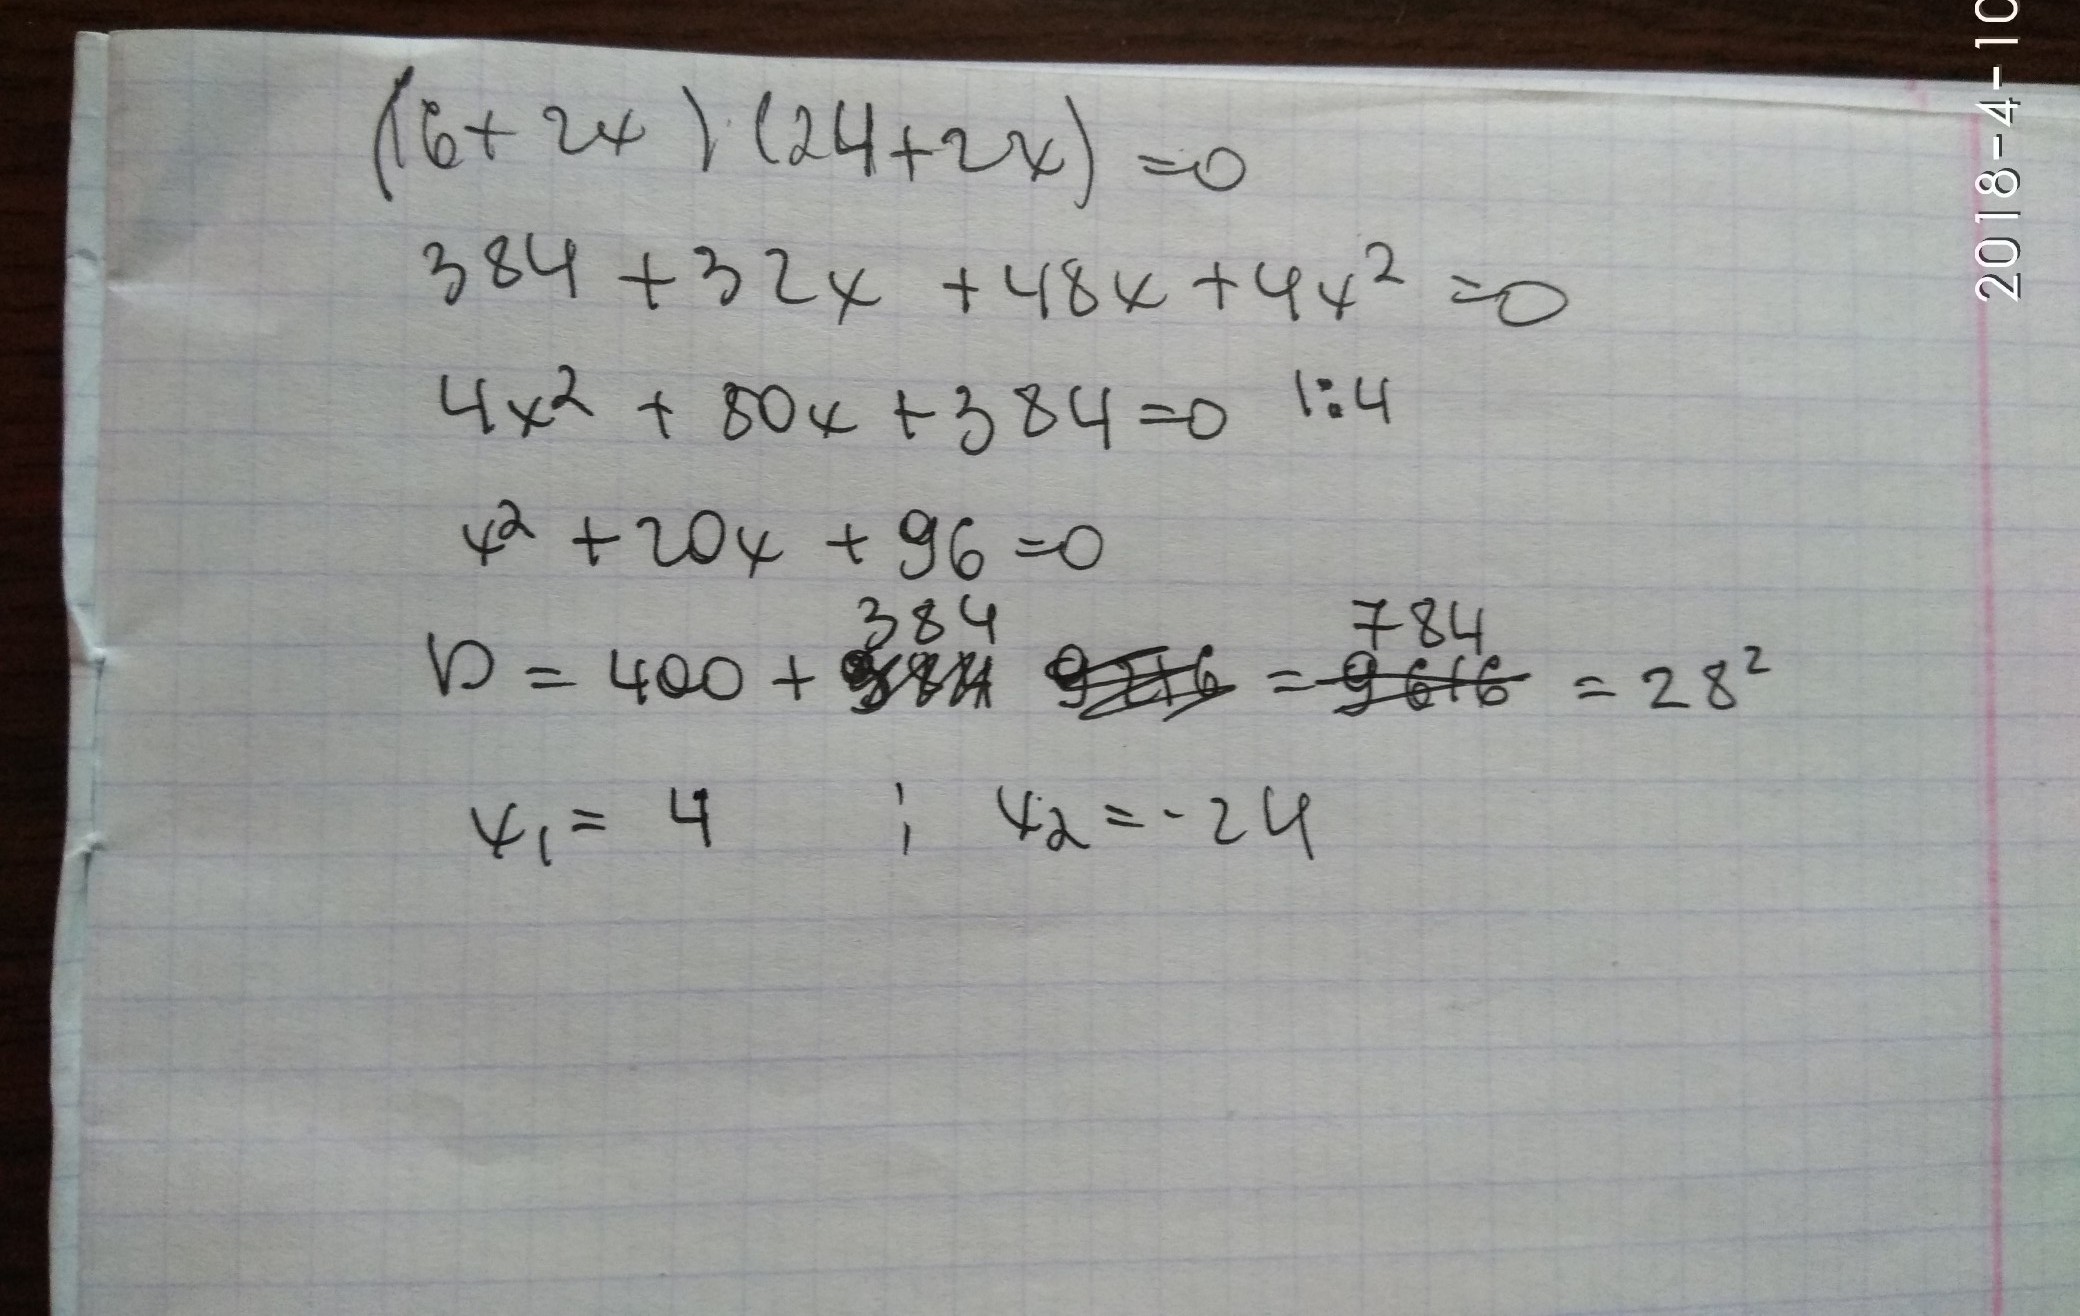 (16+2x)·(24+2x)=0
384+32x+48x+4x²=0
4x²+80x+384=0 |:4
x²+20x+96=0
D=400+384=784=28²
x₁=4 ; x₂=-24
2018-4-10